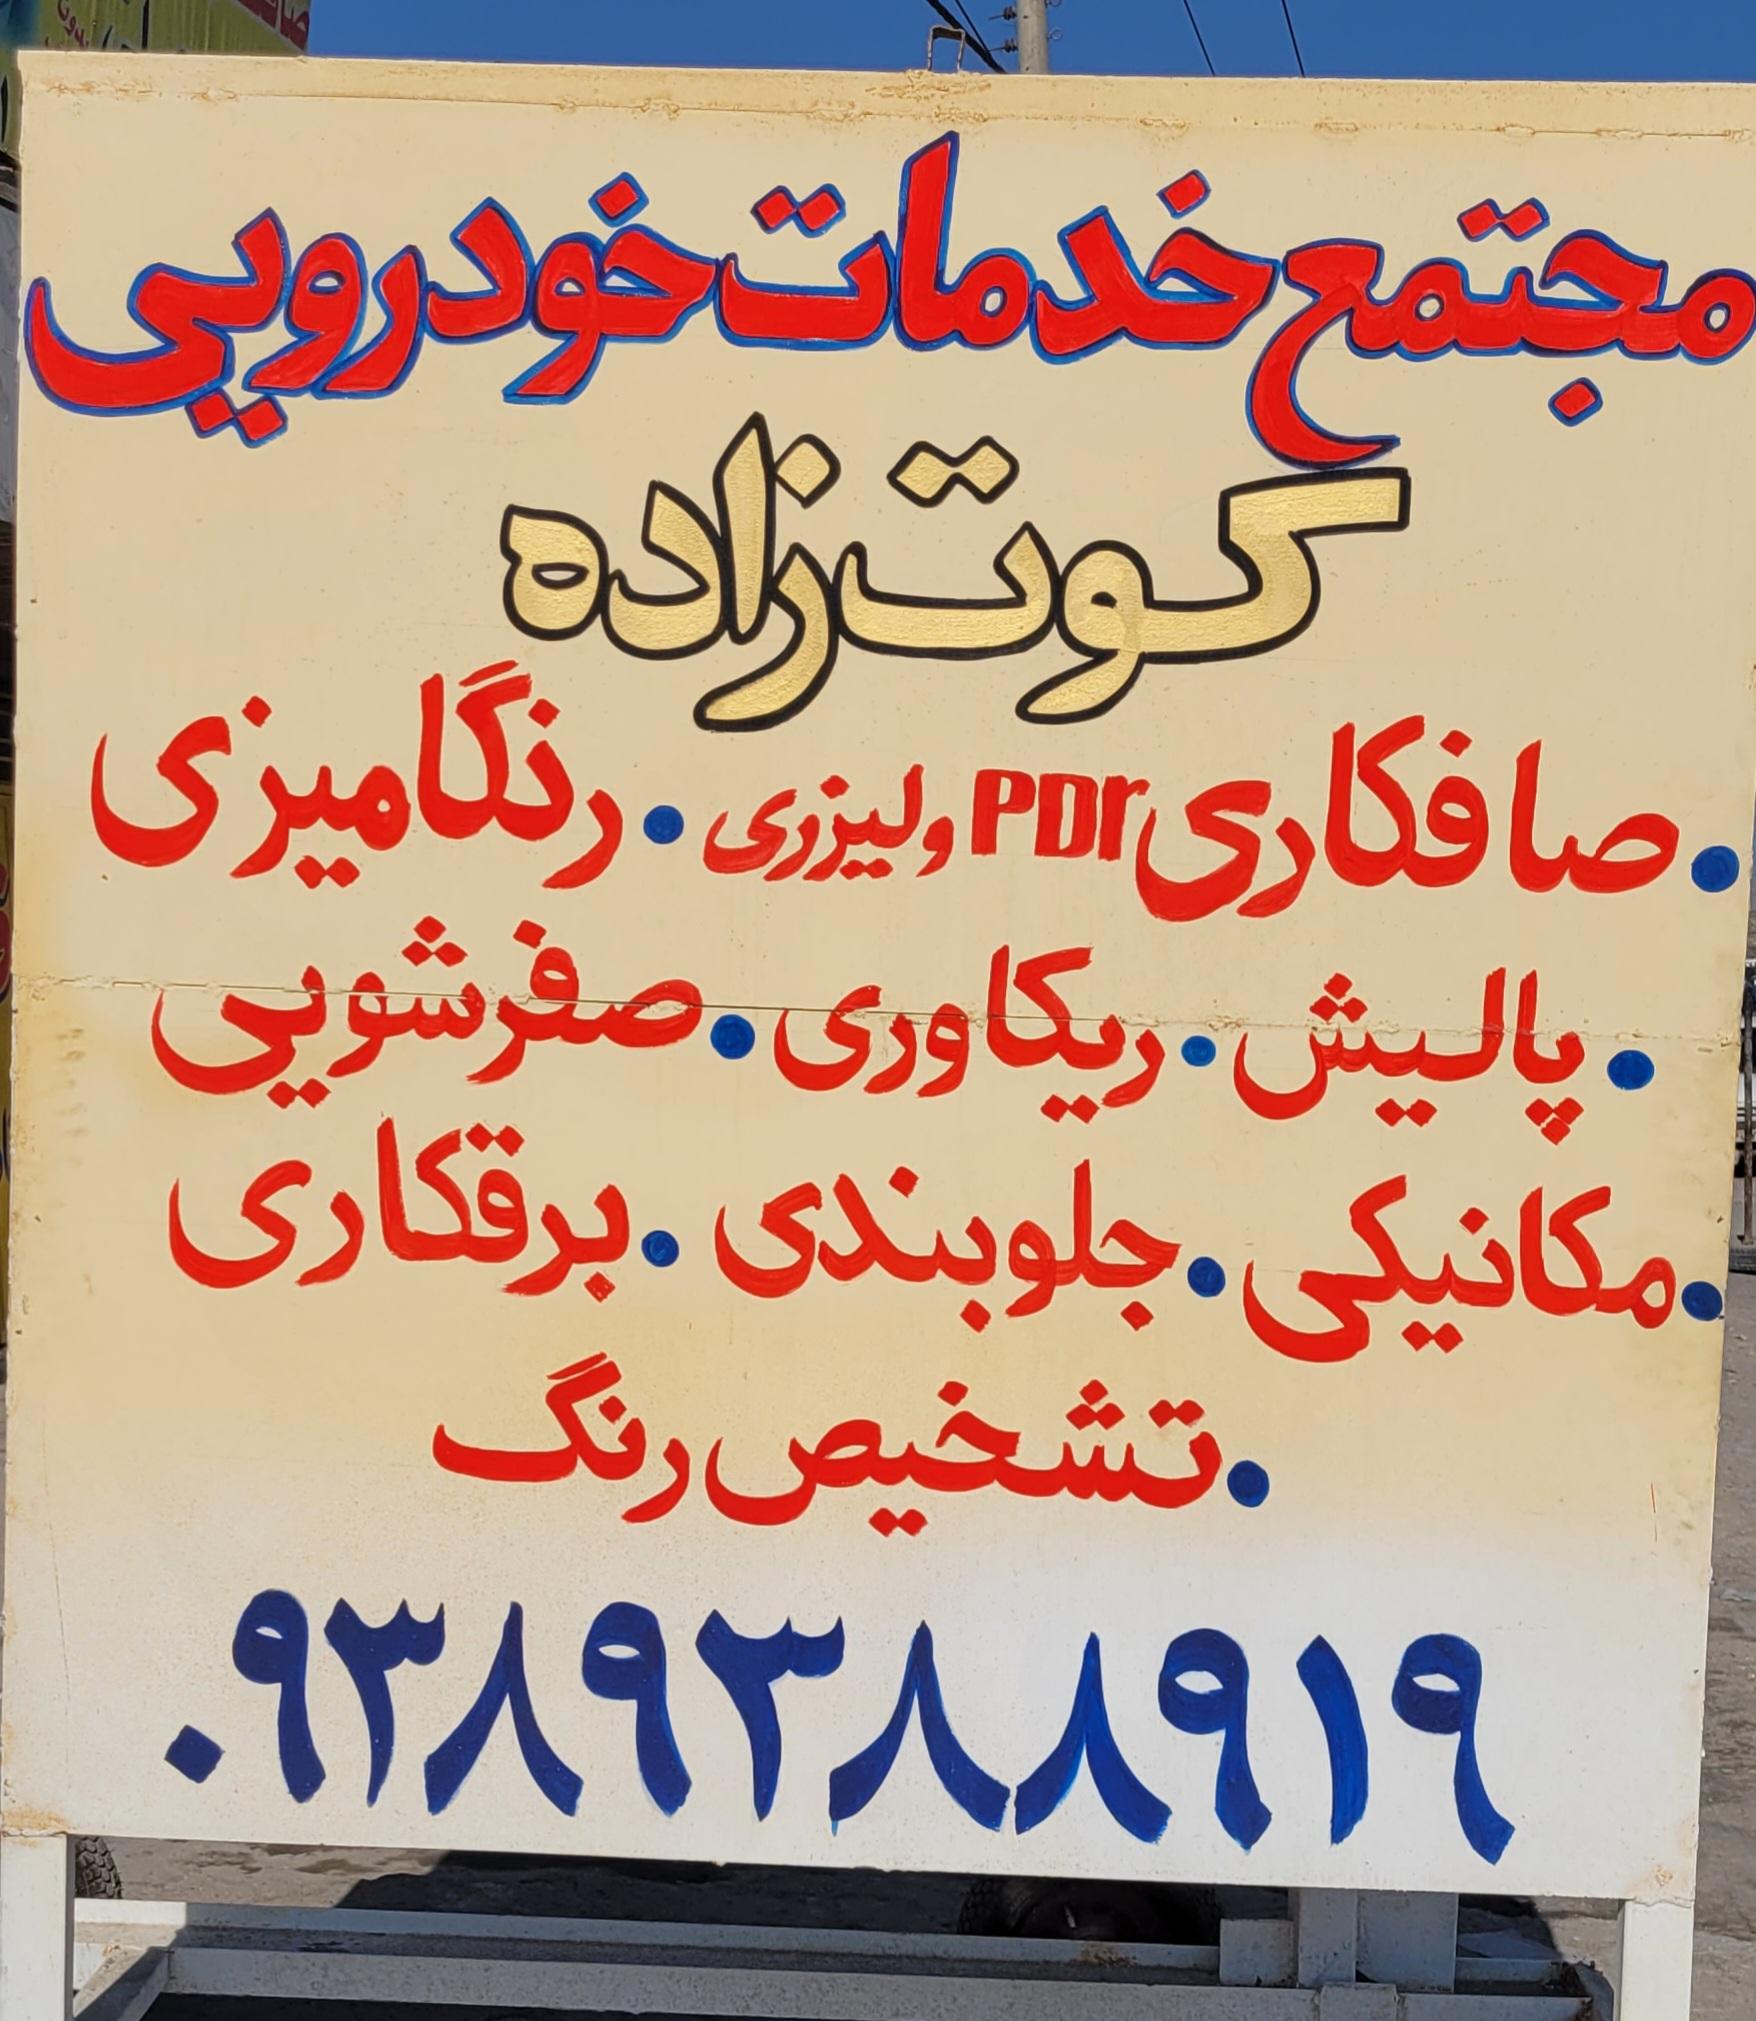 مجتمع خدمات خودرویی
کوت زاده
• صافکاری PDr ولیزری • رنگامیزی
• پالیش • ریکاوری • صفرشویی
• مکانیکی • جلوبندی • برقکاری
• تشخیص رنگ
۰۹۳۸۹۳۸۸۹۱۹